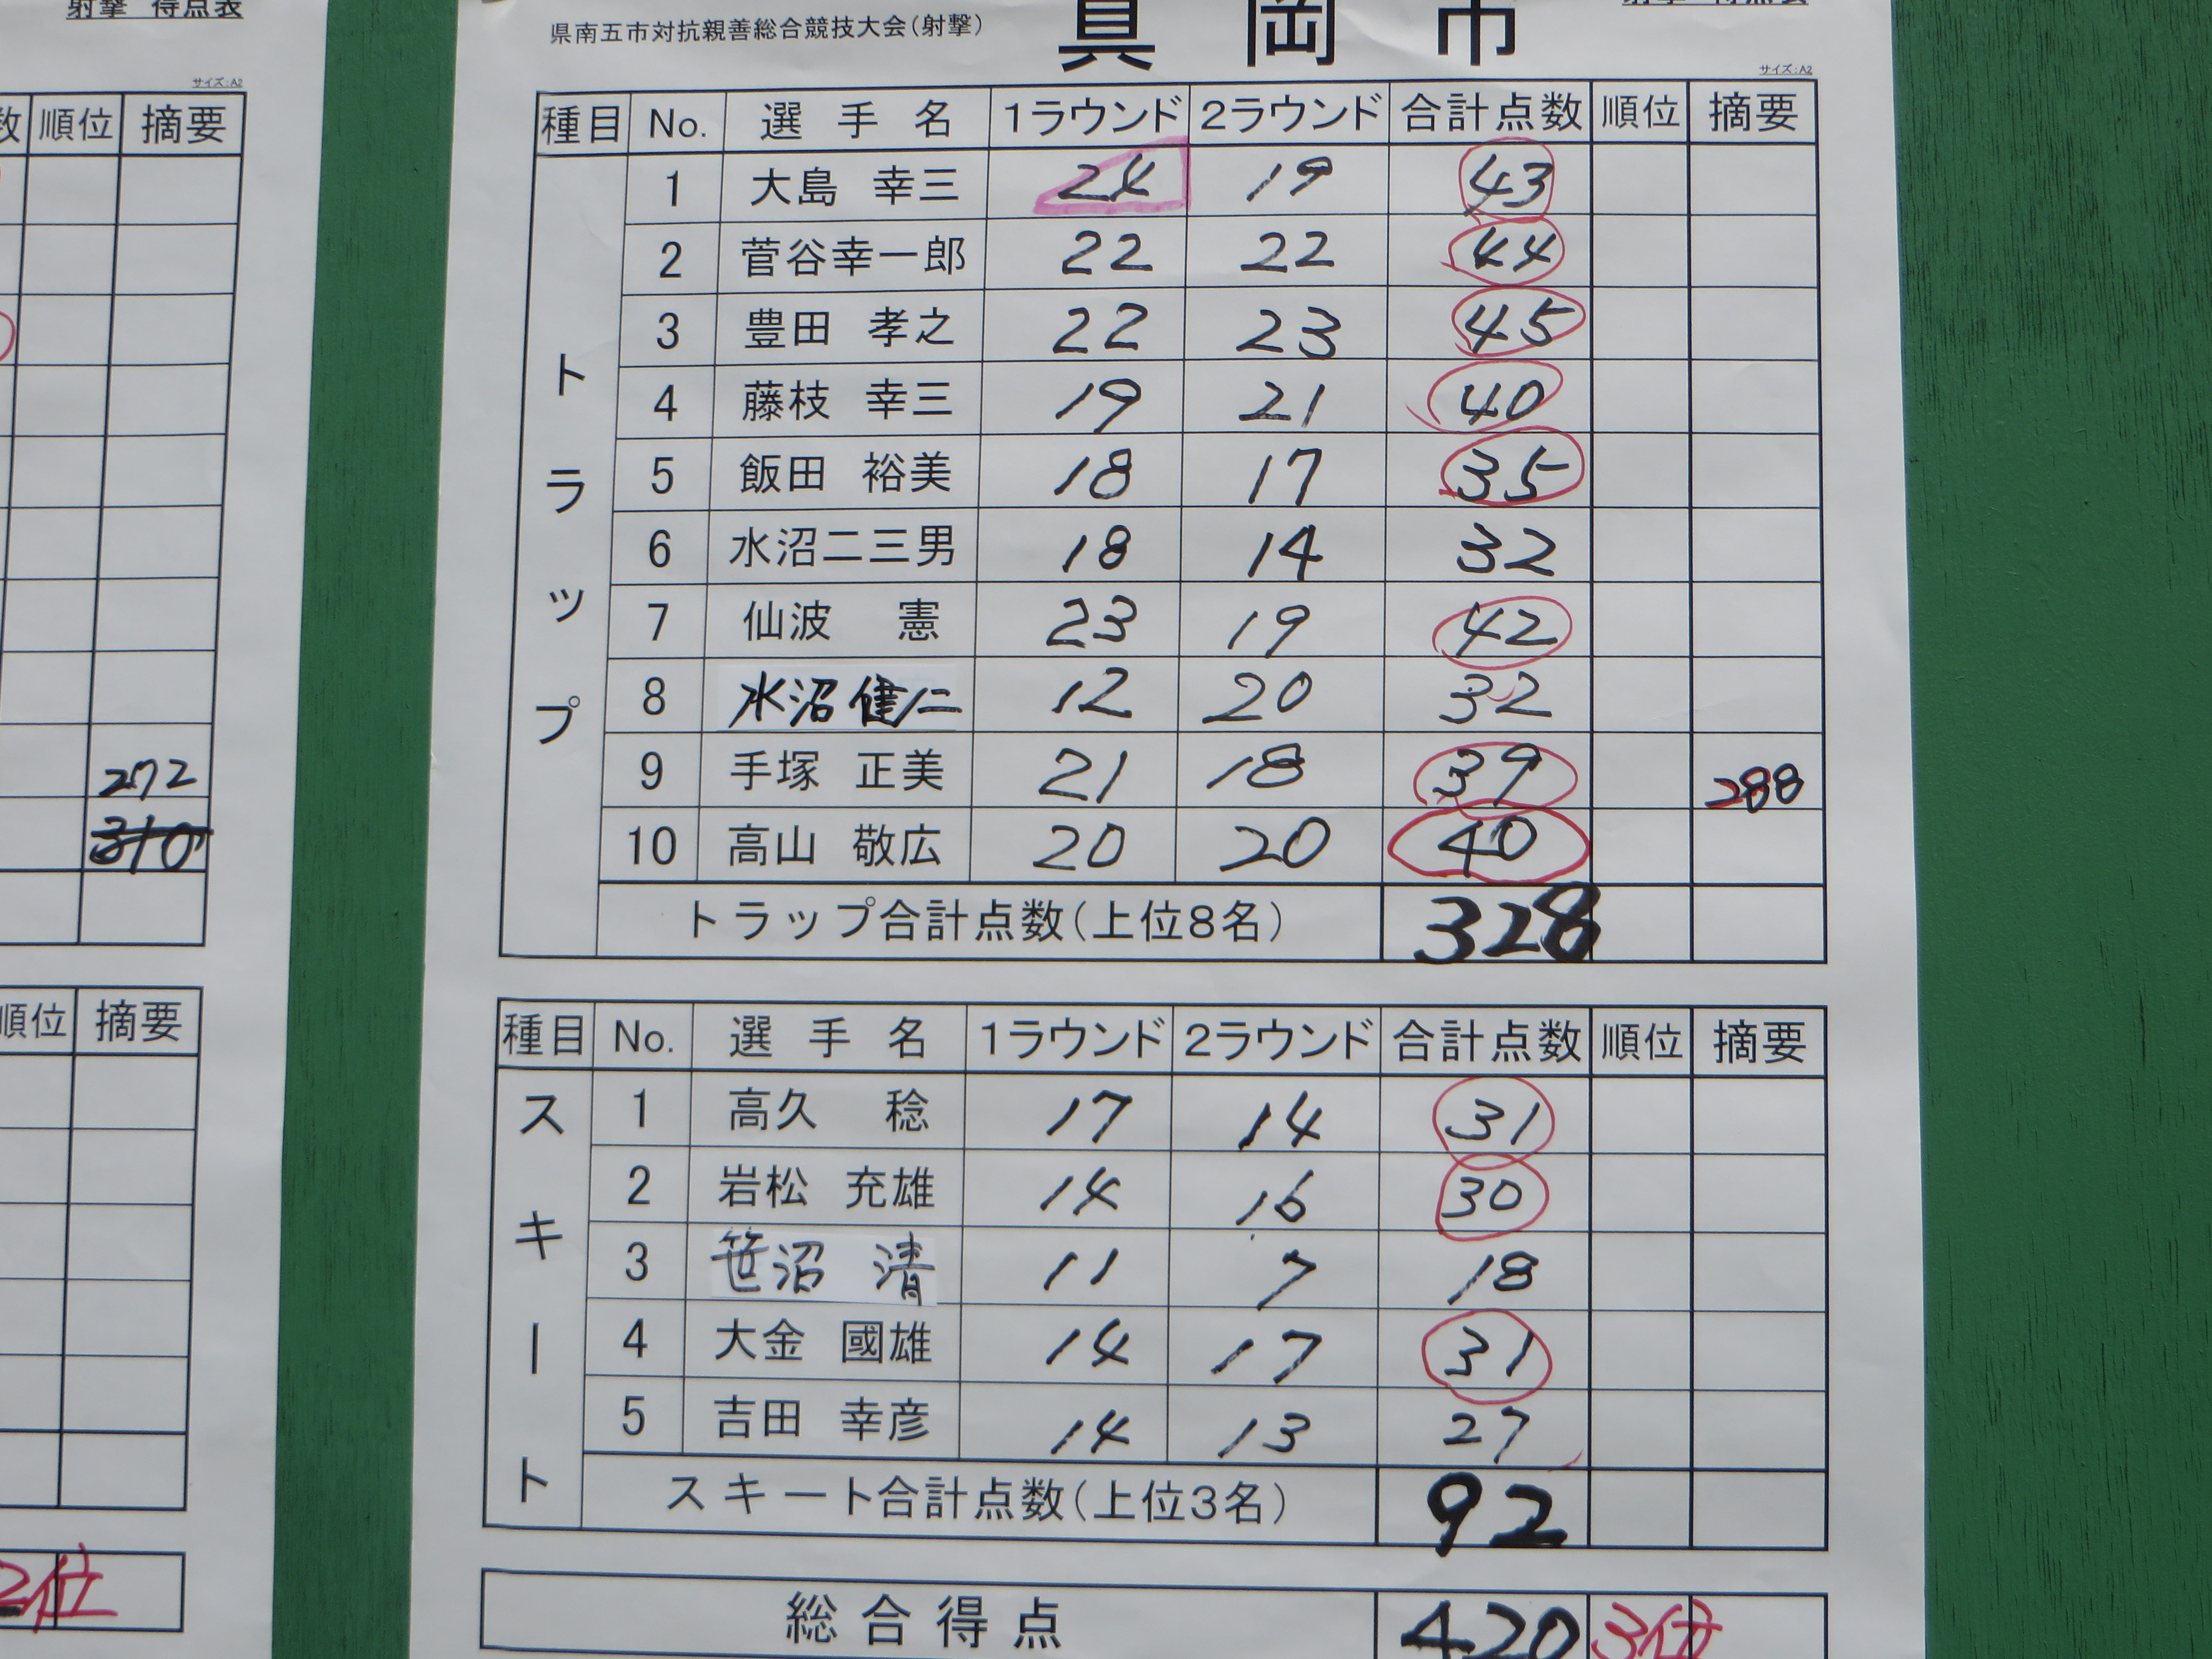 射撃 得点表
サイズ:A2
順位 摘要
272
310
順位 摘要
2位
県南五市対抗親善総合競技大会(射撃)
真岡市
サイズ:A2
種目 No. 選手名 1ラウンド 2ラウンド 合計点数 順位 摘要
トラップ
1 大島 幸三 24 19 43
2 菅谷幸一郎 22 22 44
3 豊田 孝之 22 23 45
4 藤枝 幸三 19 21 40
5 飯田 裕美 18 17 35
6 水沼二三男 18 14 32
7 仙波 憲 23 19 42
8 水沼健二 12 20 32
9 手塚 正美 21 18 39 288
10 高山 敬広 20 20 40
トラップ合計点数(上位8名) 328
種目 No. 選手名 1ラウンド 2ラウンド 合計点数 順位 摘要
スキート
1 高久 稔 17 14 31
2 岩松 充雄 14 16 30
3 笹沼 清 11 7 18
4 大金 國雄 14 17 31
5 吉田 幸彦 14 13 27
スキート合計点数(上位3名) 92
総合得点 420 3位